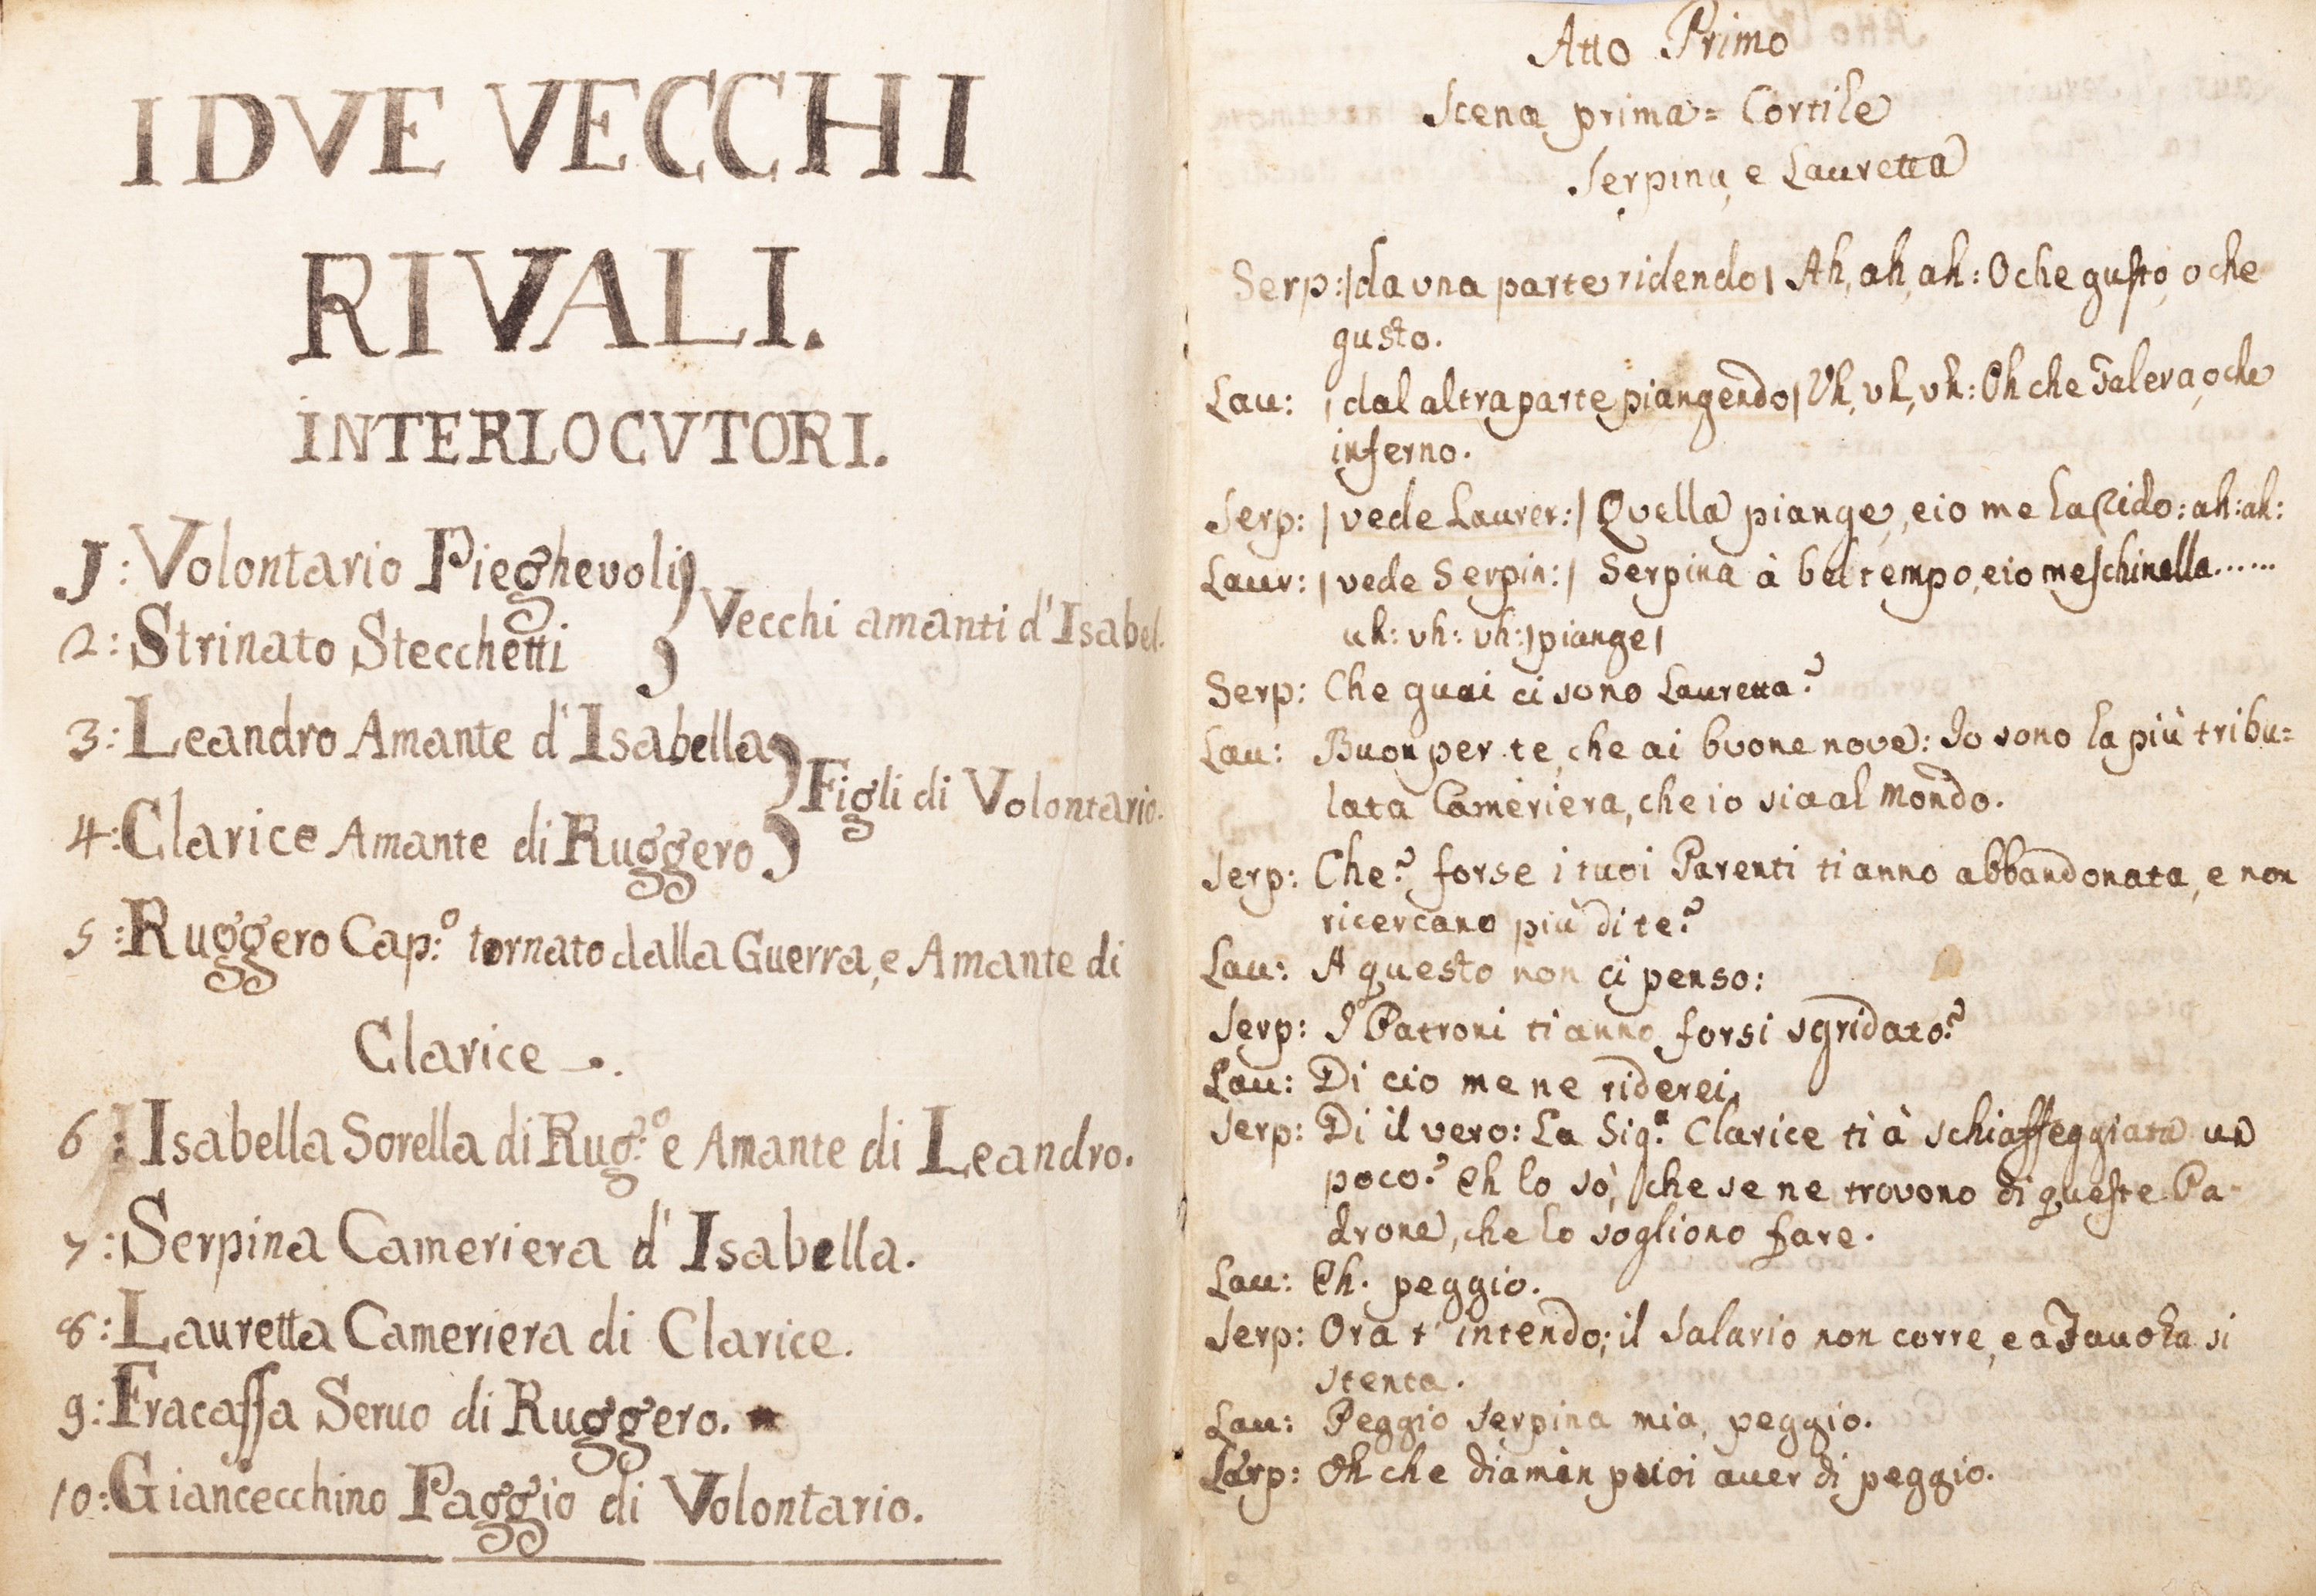 I DVE VECCHI
RIVALI.
INTERLOCVTORI.
1: Volontario Pieghevoli
Vecchi amanti d'Isabel.
2: Strinato Stecchetti
3: Leandro Amante d'Isabella
Figli di Volontario.
4: Clarice Amante di Ruggero
5: Ruggero Cap:º tornato dalla Guerra, e Amante di
Clarice
6: Isabella Sorella di Rug:º e Amante di Leandro.
7: Serpina Cameriera d'Isabella.
8: Lauretta Cameriera di Clarice.
9: Fracaſſa Seruo di Ruggero.
10: Giancecchino Paggio di Volontario.
Atto Primo
Scena prima = Cortile
Serpina, e Lauretta
Serp: | da vna parte ridendo | Ah, ah, ah: O che guſto, o che
gusto.
Lau: | dal altra parte piangendo | Vh, vh, vh: Oh che Galera, o che
inferno.
Serp: | vede Laurer: | Qvella piange, e io me la Rido: ah: ah:
Laur: | vede Serpin: | Serpina à bel tempo, e io meſchinella......
uh: vh: vh: | piange |
Serp: Che guai ci sono Lauretta?
Lau: Buon per te, che ai bvone nove: Io sono la più tribu=
lata Cameriera, che io sia al Mondo.
Serp: Che? forse i tuoi Parenti ti anno abbandonata, e non
ricercano più di te?
Lau: A questo non ci penso:
Serp: I Patroni ti anno forsi sgridato?
Lau: Di cio me ne riderei,
Serp: Di il vero: La Sig:ª Clarice ti à schiaffeggiata un
poco? Eh lo sò, che se ne trovono di queſte Pa-
drone, che lo sogliono fare.
Lau: Eh. peggio.
Serp: Ora t'intendo; il Salario non corre, e a Tauola si
stenta.
Lau: Peggio Serpina mia, peggio.
Serp: Oh che diamin puoi auer di peggio.